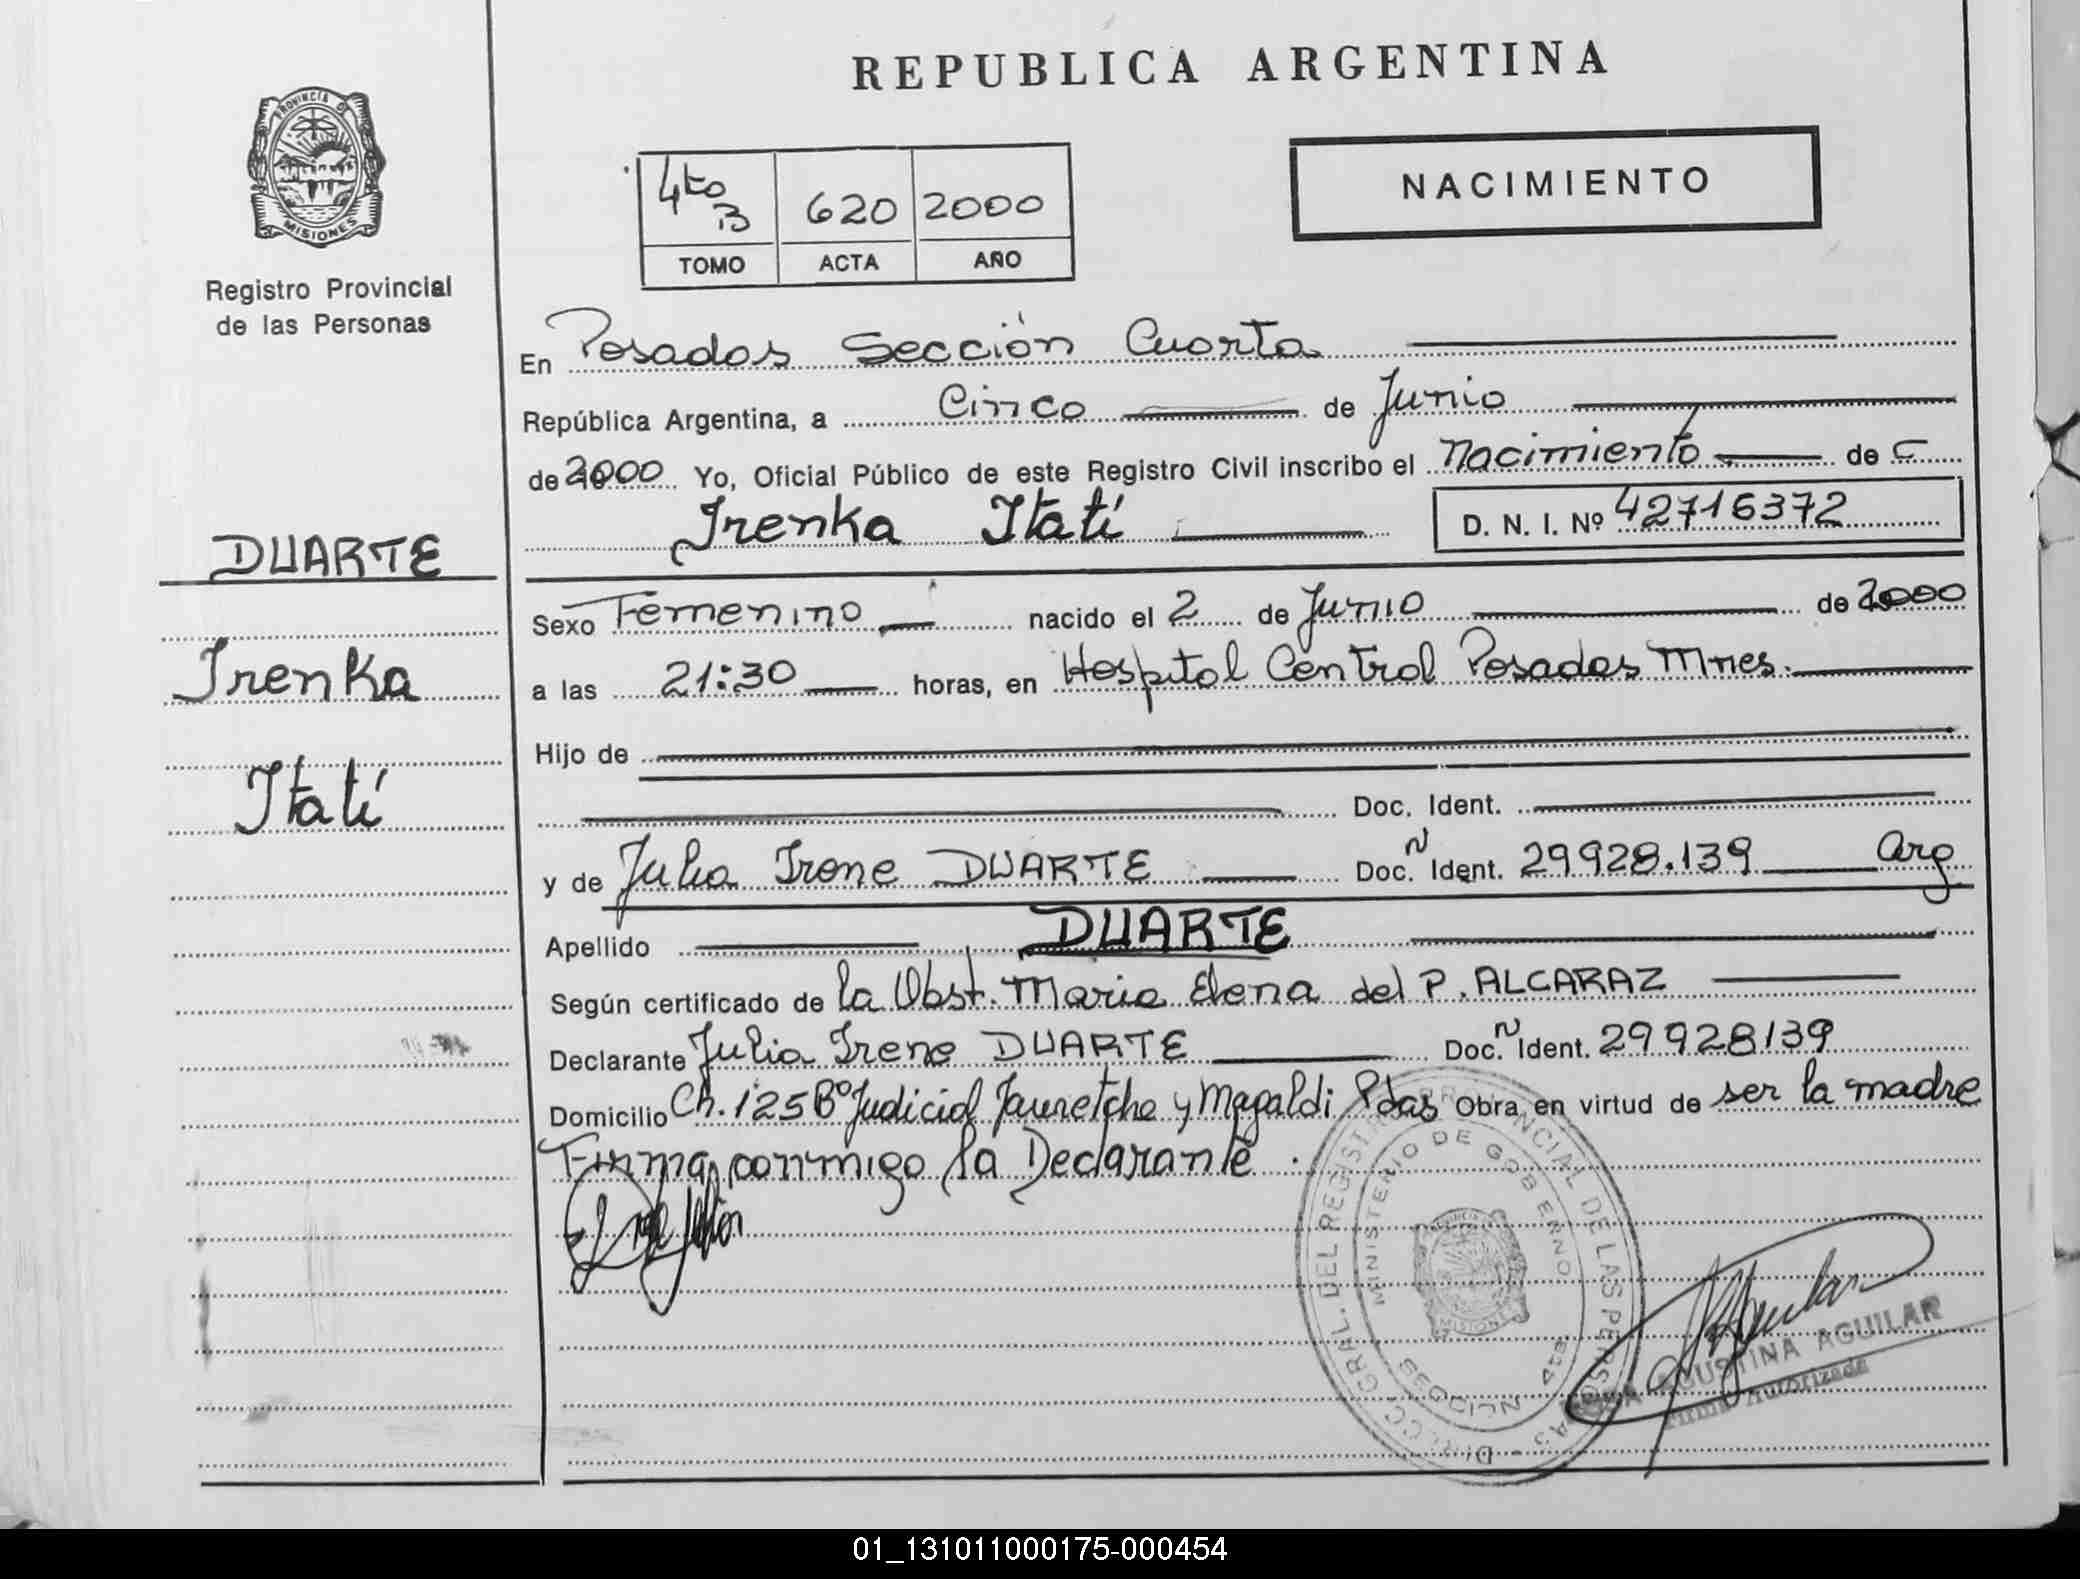 REPUBLICA ARGENTINA
PROVINCIA DE
MISIONES
Registro Provincial
de las Personas
4to B 620 2000
TOMO ACTA AÑO
NACIMIENTO
En Posadas Sección Cuarta
República Argentina, a Cinco de Junio
de 2000 Yo, Oficial Público de este Registro Civil inscribo el Nacimiento de
Irenka Itatí D. N. I. Nº 42716372
DUARTE
Irenka
Itatí
Sexo Femenino nacido el 2 de Junio de 2000
a las 21:30 horas, en Hospital Central Posadas Mnes.
Hijo de
Doc. Ident.
y de Julia Irene DUARTE Doc. N Ident. 29928.139 Arg
Apellido DUARTE
Según certificado de la Obst. Maria Elena del P. ALCARAZ
Declarante Julia Irene DUARTE Doc. N Ident. 29928139
Domicilio Ch. 125 Bº Judicial Jauretche y Magaldi Pdas Obra en virtud de ser la madre
Firma conmigo la Declarante.
DIRECC. GRAL. DEL REGISTRO PROVINCIAL DE LAS PERSONAS
MINISTERIO DE GOBIERNO
SECCION 4ta
MISIONES
AGUSTINA AGUILAR
Firma Autorizada
01_131011000175-000454